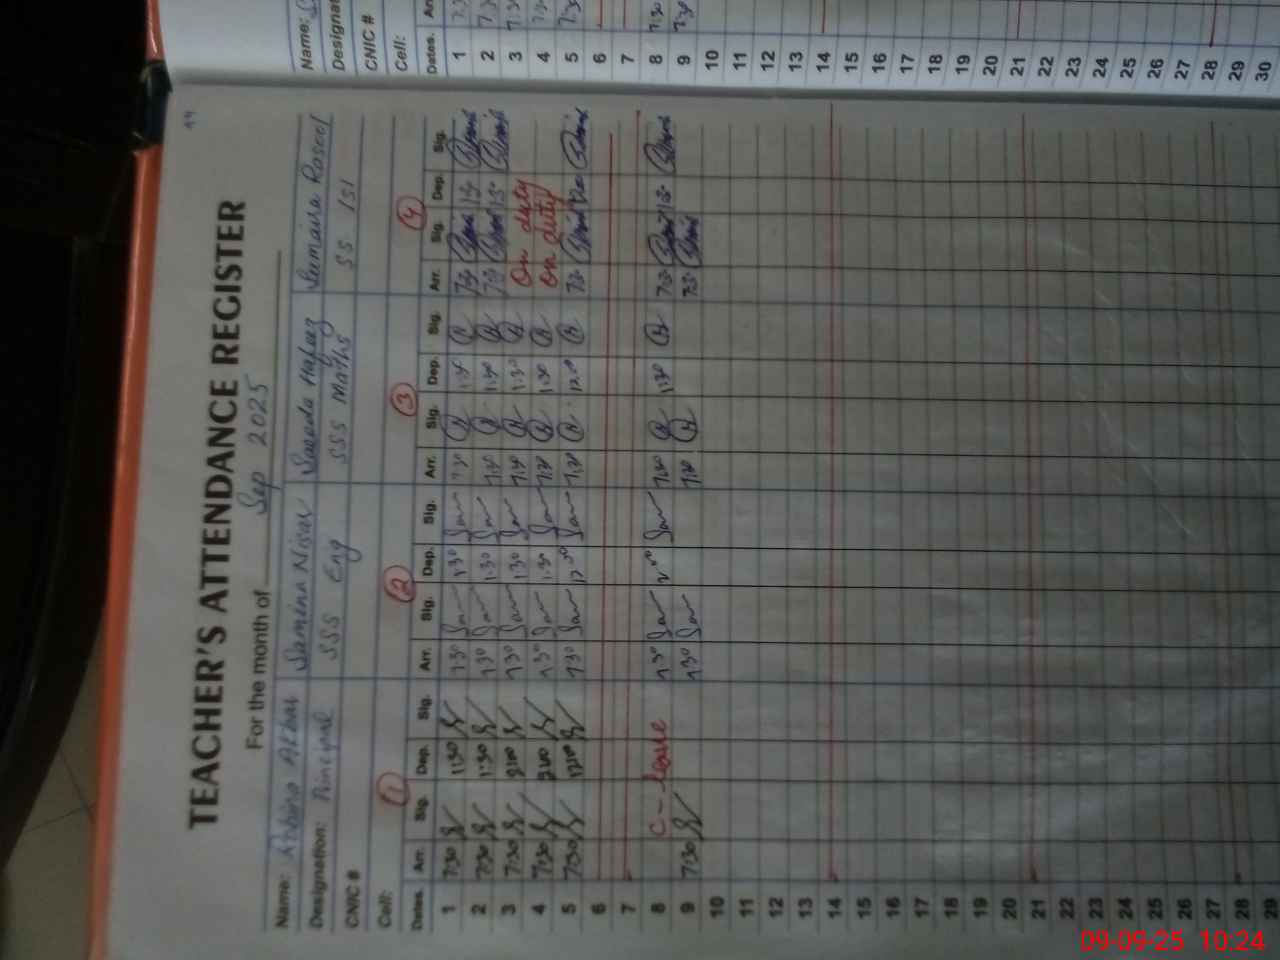 44
TEACHER'S ATTENDANCE REGISTER
For the month of Sep 2025
Name: Akbar Samina Nisar Saeeda Hafeez Sumaira Rasool
Designation: Principal SSS Eng SSS Maths SS Isl
CNIC #
Cell: 1 2 3 4
Dates. Arr. Sig. Dep. Sig. Arr. Sig. Dep. Sig. Arr. Sig. Dep. Sig. Arr. Sig. Dep. Sig.
1 7:30 1:30 7:30 1:30 7:30 1:30 7:30 1:30
2 7:30 1:30 7:30 1:30 7:30 1:30 7:30 1:30
3 7:30 2:00 7:30 1:30 7:30 1:30 On duty
4 7:30 2:00 7:30 1:30 7:30 1:30 On duty
5 7:30 12:00 7:30 12:30 7:30 12:00 7:30 12:00
6
7
8 C-leave 7:30 2:00 7:30 1:30 7:30 1:30
9 7:30 7:30 7:30 7:30
10
11
12
13
14
15
16
17
18
19
20
21
22
23
24
25
26
27
28
29
Name:
Designat
CNIC #
Cell:
Dates. Arr
1 7:30
2 7:30
3 7:30
4 7:30
5 7:30
6
7
8 7:30
9 7:30
10
11
12
13
14
15
16
17
18
19
20
21
22
23
24
25
26
27
28
29
30
09-09-25 10:24